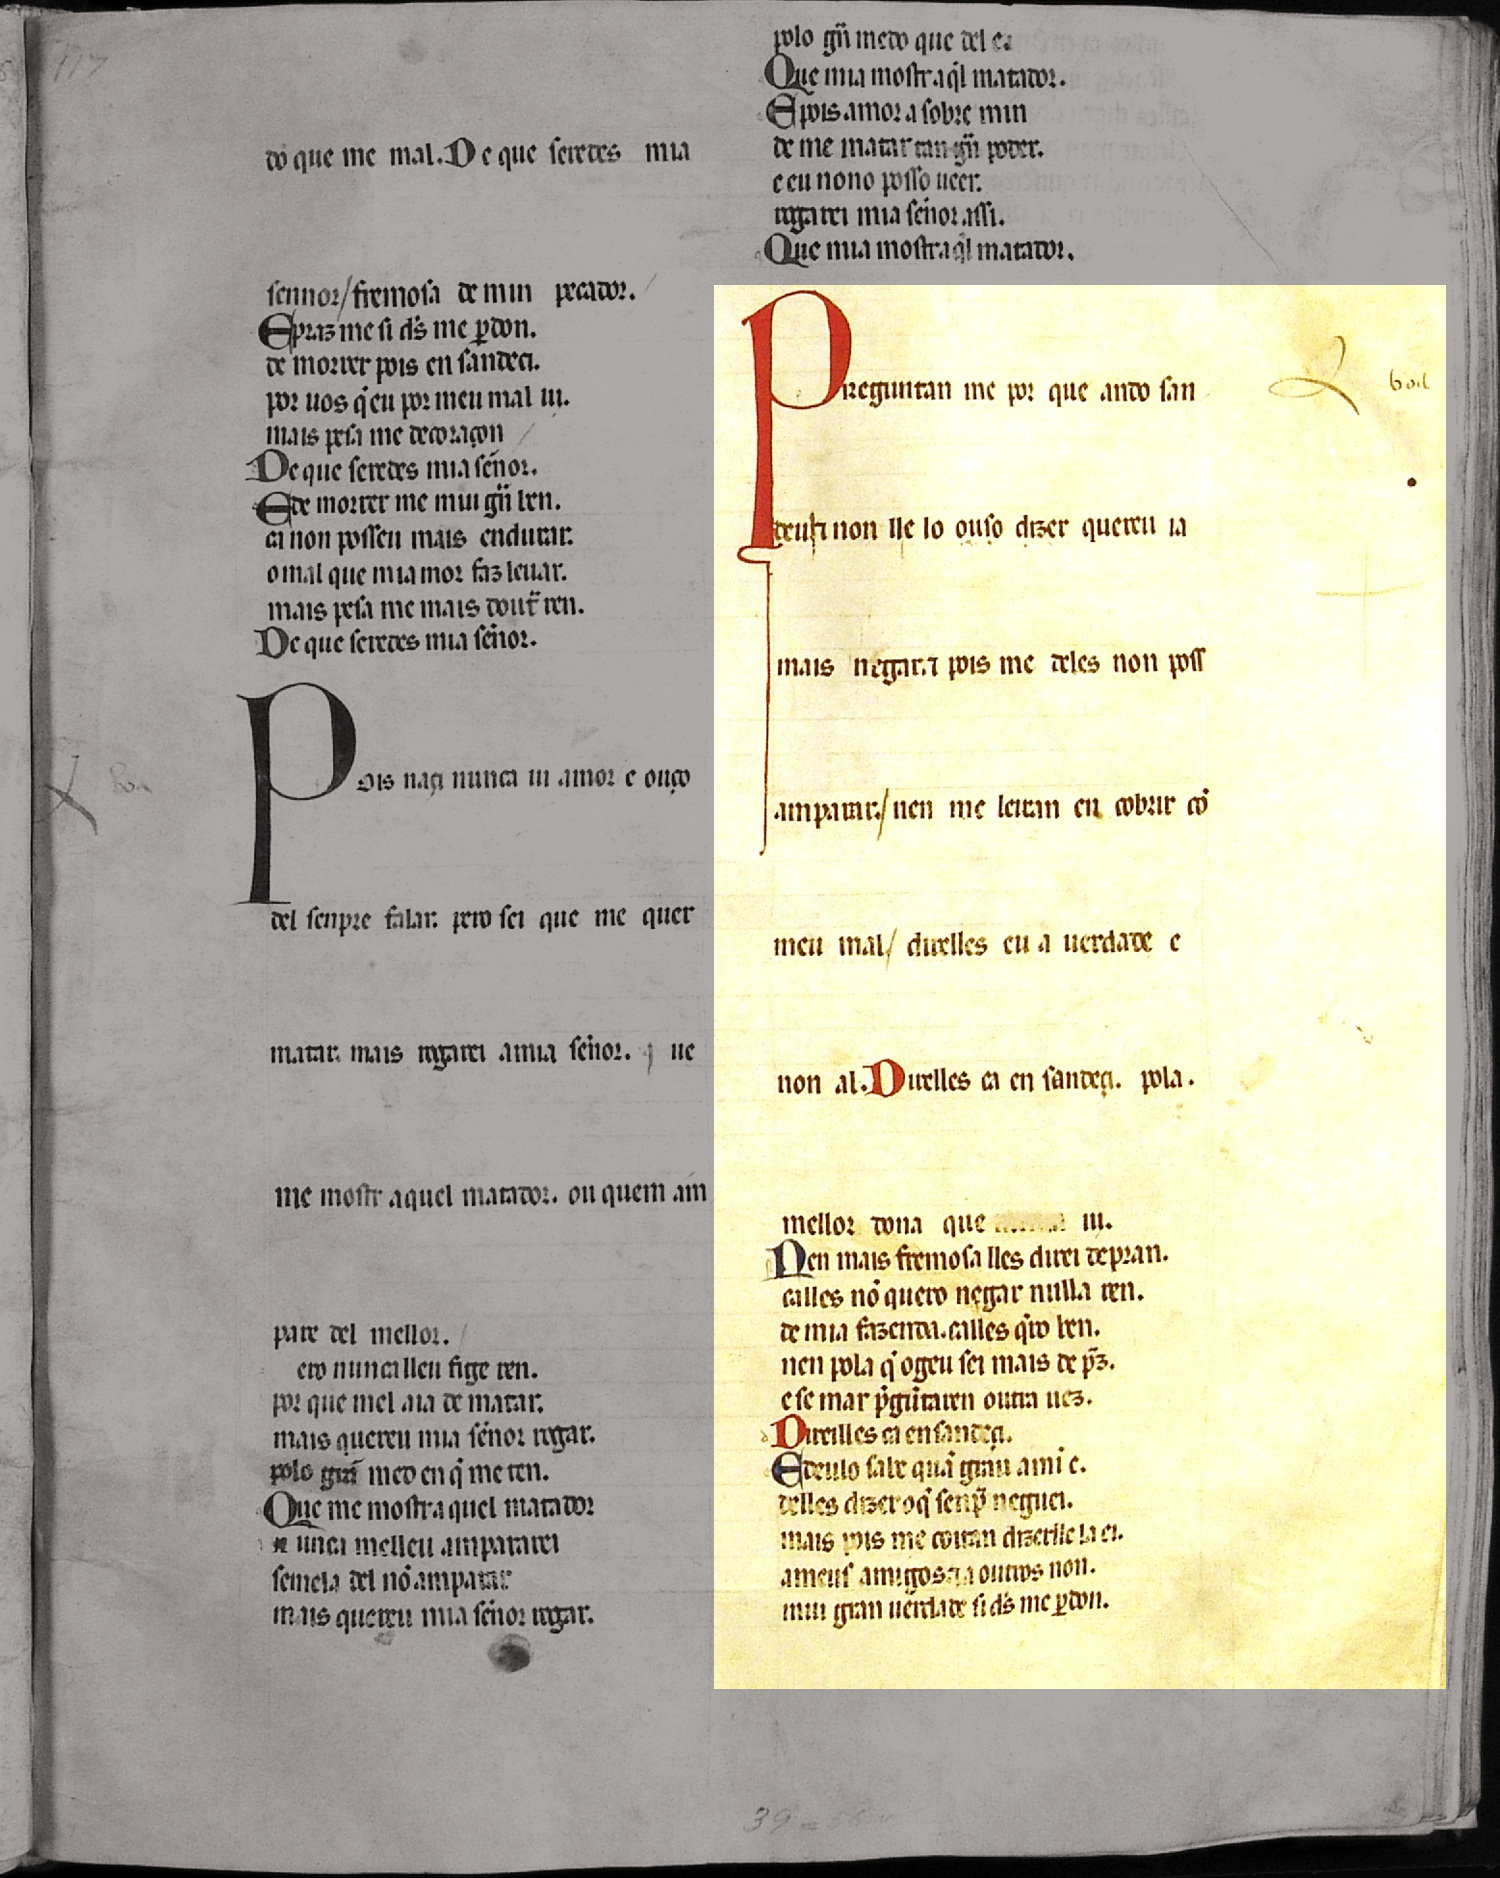 do que me mal. De que seredes mia
sennor/fremosa de min pecador.
E praz me si d̃s me ꝑdon.
de morrer pois en sandeci.
por uos q̃ eu por meu mal ui.
mais pesa me de coraçon
De que seredes mia sẽnor.
E de morrer me mui gñ ben.
ca non posseu mais endurar.
o mal que mi amor faz leuar.
mais pesa me mais doutr̃ ren.
De que seredes mia sẽnor.
Pois naçi nunca ui amor e ouço
del senpre falar. pero sei que me quer
matar. mais rogarei a mia sẽnor. q ue
me mostr aquel matador. ou quem am
pare del mellor.
ero nunca lleu fige ren.
por que mel aia de matar.
mais quereu mia sẽnor rogar.
polo grã medo en q̃ me ten.
Que me mostra quel matador
N unca melleu ampararei
se mela del nõ amparar
mais quereu mia sẽnor rogar.
polo gñ medo que del ei
Que mia mostraq̃l matador.
E pois amor a sobre min
de me matar tan gñ poder.
e eu nono posso ueer.
rogarei mia sẽnor assi.
Que mia mostraq̃l matador.
Preguntan me por que ando san
deu⁊ non lle lo ouso dizer quereu ia
mais negar.⁊ pois me deles non poss
amparar./nen me leixan en cobrir cõ
meu mal/ direlles eu a uerdade e
non al. Direlles ca en sandeçi. pola.
mellor dona que ui.
Nen mais fremosa lles direi depran.
calles nõ quero negar nulla ren.
de mia fazenda. calles q̃ro ben.
nen pola q̃ ogeu sei mais de p̃z.
e se mar p̃gũtaren outra uez.
Direilles ca ensandeçi.
E deulo sabe quã grau ami e.
delles dizer oq̃ senp̃ neguei.
mais pois me coitan dizerlle la ei.
a meus amigos⁊ a outros non.
mui gran uerdade si d̃s me ꝑdon.